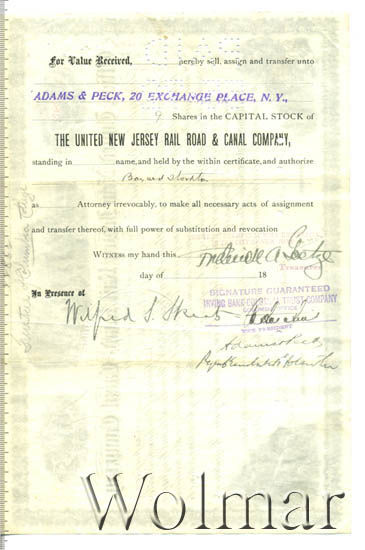 For Value Received, hereby sell, assign and transfer unto
ADAMS & PECK, 20 EXCHANGE PLACE, N. Y.,
9 Shares in the CAPITAL STOCK of
THE UNITED NEW JERSEY RAIL ROAD & CANAL COMPANY,
standing in name, and held by the within certificate, and authorize
Bayard Stockton
as Attorney irrevocably, to make all necessary acts of assignment
and transfer thereof, with full power of substitution and revocation
WITNESS my hand this
Treasurer
day of 18
In Presence of
SIGNATURE GUARANTEED
TRUST COMPANY
Wilfred S.
VICE PRESIDENT
Adams & Peck
Wolmar